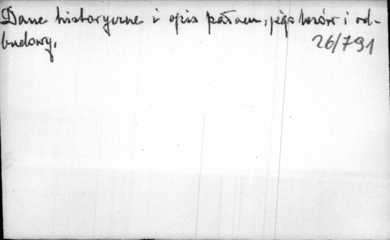 Dane historyczne i opis pałacu, jego losów i od-
budowy.
26/791